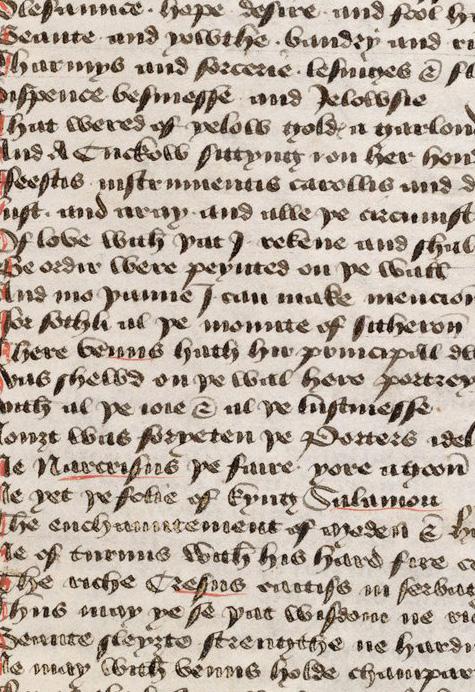 Plesaunce · hope desire · and fool h
Beaute · and yowthe · baudry and ri
Charmys and sorcerie · lesinges & fl
dispence · besinesse · and Jelowsie
That wered of yelow golde a garlond
And A Cuckow sittyng ron her hon
Feestis · instrumentis carollis and d
lust · and aray · and alle þe circumst
Of love with þat J · rekene and shal
Be ordir were peynted on þe wall
And mo þanne J can make mencion
For sothli al þe mounte of sitheron
There venus hath hir principall dw
was shewd on þe wal here portrey
with al þe ioie & al þe lustinesse
nouȝt was forȝeten þe Porters idel
Ne Narcissus þe faire · yore agoon
Ne yet þe folie of kyng Salamon
The enchauntement of Medea & h
Ne of turnus with his hard fire co
The riche Cresus caitiff in servac
Thus may ye se þat wisdom ne ric
Beaute sleyȝto strengthe ne hardi
Ne may with venus holde champar